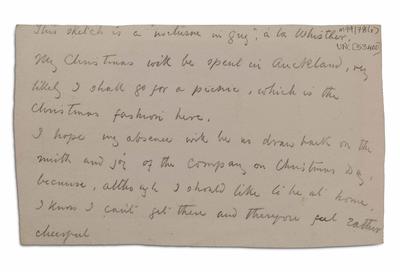 This sketch is a "nocturne in grey", à la Whistler.
My Christmas will be spent in Auckland, very
likely I shall go for a picnic, which is the
Christmas fashion here.
I hope my absence will be no draw back on the
mirth and joy of the company on Christmas Day,
because, although I should like to be at home,
I know I can't get there and therefore feel rather
cheerful